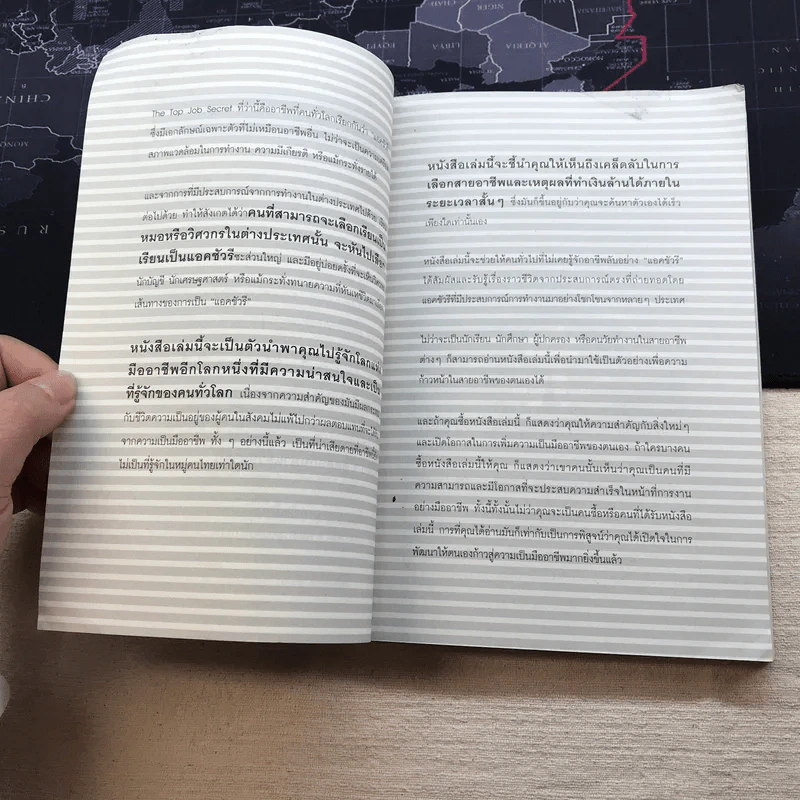 CHINESE
NIGER
CHAD
MAURITANIA
EGYPT
LIBYA
ALGERIA
MOROCCO
The Top Job Secret ที่ว่านี้คืออาชีพที่คนทั่วโลกเรียกกันว่า
ซึ่งมีเอกลักษณ์เฉพาะตัวที่ไม่เหมือนอาชีพอื่น ไม่ว่าจะเป็นความ
สภาพแวดล้อมในการทำงาน ความมีเกียรติ หรือแม้กระทั่งรายได้
และจากการที่มีประสบการณ์จากการทำงานในต่างประเทศไปด้วย
ต่อไปด้วย ทำให้สังเกตได้ว่าคนที่สามารถจะเลือกเรียนเป็น
หมอหรือวิศวกรในต่างประเทศนั้น จะหันไปเลือก
เรียนเป็นแอคชัวรีซะส่วนใหญ่ และมีอยู่บ่อยครั้งที่จะเห็น
นักบัญชี นักเศรษฐศาสตร์ หรือแม้กระทั่งทนายความที่หันเหชีวิต
เส้นทางของการเป็น "แอคชัวรี"
หนังสือเล่มนี้จะเป็นตัวนำพาคุณไปรู้จักโลก
มืออาชีพอีกโลกหนึ่งที่มีความน่าสนใจและเป็น
ที่รู้จักของคนทั่วโลก เนื่องจากความสำคัญของมันมีผล
กับชีวิตความเป็นอยู่ของผู้คนในสังคมไม่แพ้ไปกว่าผลตอบแทนที่จะได้
จากความเป็นมืออาชีพ ทั้ง ๆ อย่างนี้แล้ว เป็นที่น่าเสียดายที่อาชีพนี้
ไม่เป็นที่รู้จักในหมู่คนไทยเท่าใดนัก
หนังสือเล่มนี้จะชี้นำคุณให้เห็นถึงเคล็ดลับในการ
เลือกสายอาชีพและเหตุผลที่ทำเงินล้านได้ภายใน
ระยะเวลาสั้นๆ ซึ่งมันก็ขึ้นอยู่กับว่าคุณจะค้นหาตัวเองได้เร็ว
เพียงใดเท่านั้นเอง
หนังสือเล่มนี้จะช่วยให้คนทั่วไปที่ไม่เคยรู้จักอาชีพลับอย่าง "แอคชัวรี"
ได้สัมผัสและรับรู้เรื่องราวชีวิตจากประสบการณ์ตรงที่ถ่ายทอดโดย
แอคชัวรีที่มีประสบการณ์การทำงานมาอย่างโชกโชนจากหลายๆ ประเทศ
ไม่ว่าจะเป็นนักเรียน นักศึกษา ผู้ปกครอง หรือคนวัยทำงานในสายอาชีพ
ต่างๆ ก็สามารถอ่านหนังสือเล่มนี้เพื่อนำมาใช้เป็นตัวอย่างเพื่อความ
ก้าวหน้าในสายอาชีพของตนเองได้
และถ้าคุณซื้อหนังสือเล่มนี้ ก็แสดงว่าคุณให้ความสำคัญกับสิ่งใหม่ๆ
และเปิดโอกาสในการเพิ่มความเป็นมืออาชีพของตนเอง ถ้าใครบางคน
ซื้อหนังสือเล่มนี้ให้คุณ ก็แสดงว่าเขาคนนั้นเห็นว่าคุณเป็นคนที่มี
ความสามารถและมีโอกาสที่จะประสบความสำเร็จในหน้าที่การงาน
อย่างมืออาชีพ ทั้งนี้ทั้งนั้นไม่ว่าคุณจะเป็นคนซื้อหรือคนที่ได้รับหนังสือ
เล่มนี้ การที่คุณได้อ่านมันก็เท่ากับเป็นการพิสูจน์ว่าคุณได้เปิดใจในการ
พัฒนาให้ตนเองก้าวสู่ความเป็นมืออาชีพมากยิ่งขึ้นแล้ว